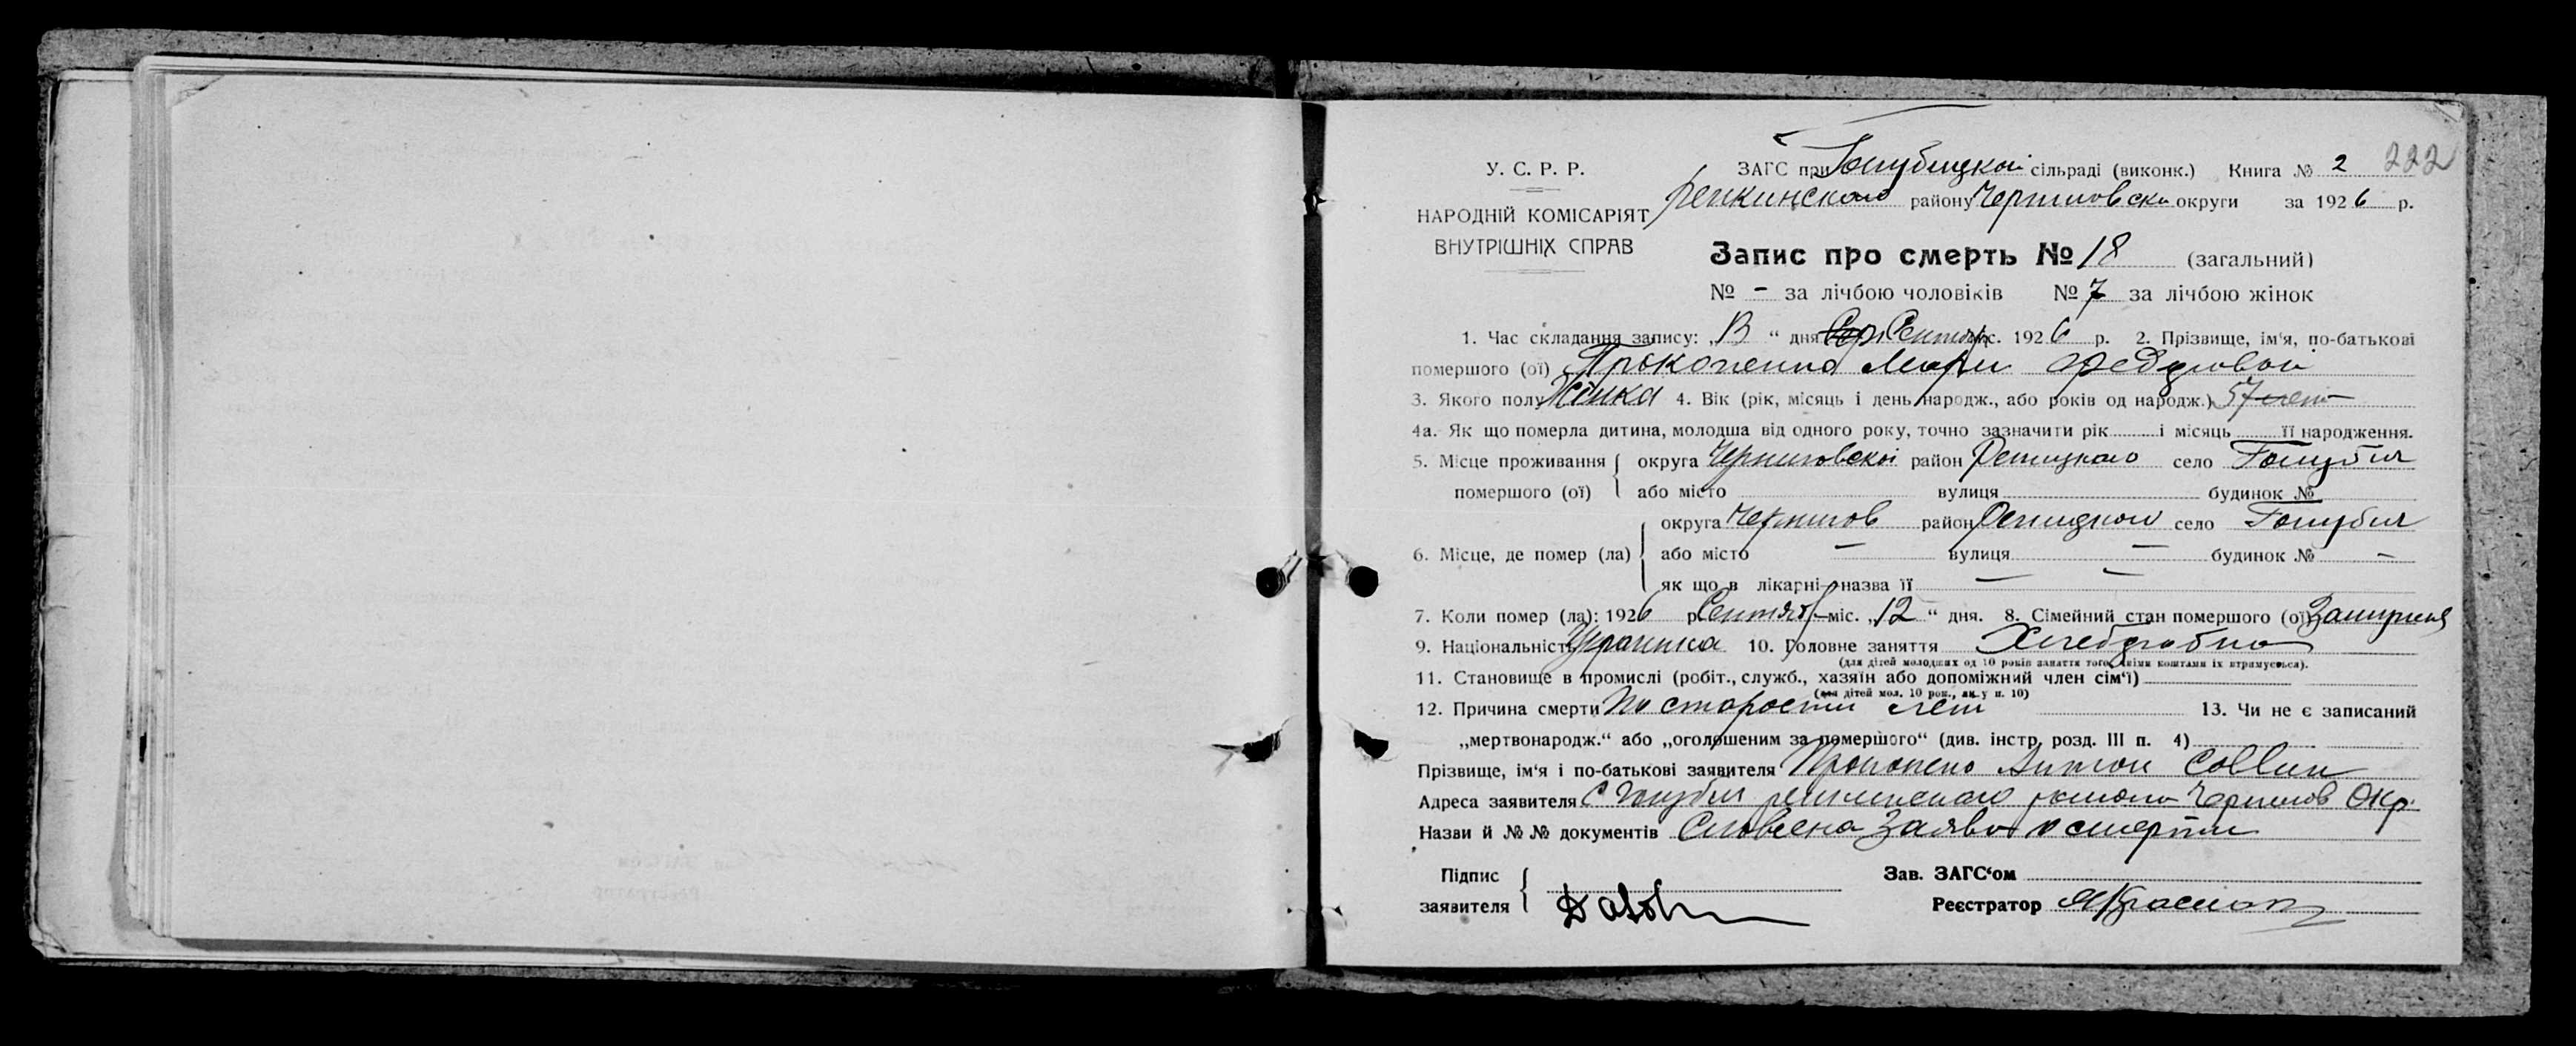 У. С. Р. Р.
НАРОДНІЙ КОМІСАРІЯТ
ВНУТРІШНІХ СПРАВ
ЗАГС при Голубицкой сільраді (виконк.) Книга № 2 222
Репкинского району Черниговски округи за 1926 р.
Запис про смерть № 18 (загальний)
№ - за лічбою чоловіків № 7 за лічбою жінок
1. Час складання запису: „13“ дня Сентября с. 1926 р. 2. Прізвище, ім'я, по-батькові
помершого (ої) Прокопенко Мари Федоровой
3. Якого полу Жінка 4. Вік (рік, місяць і день народж., або років од народж.) 57 лет
4а. Як що померла дитина, молодша від одного року, точно зазначити рік і місяць її народження.
5. Місце проживання помершого (ої) округа Черниговской район Репицкого село Голубичи
або місто вулиця будинок №
6. Місце, де помер (ла) округа Чернигов район Репицкой село Голубичи
або місто — вулиця — будинок № —
як що в лікарні—назва її — —
7. Коли помер (ла): 1926 р. Сентяб міс. „12“ дня. 8. Сімейний стан помершого (ої)
9. Національність Украинка 10. Головне заняття Хлебороб
(для дітей молодших од 10 років заняття того, чиїми коштами їх втримується).
11. Становище в промислі (робіт., служб., хазяїн або допоміжний член сім'ї)
(для дітей мол. 10 рок., як у п. 10)
12. Причина смерти По старости лет 13. Чи не є записаний
„мертвонародж.“ або „оголошеним за помершого“ (див. інстр. розд. III п. 4)
Прізвище, ім'я і по-батькові заявителя Прокопенко Антон
Адреса заявителя С Голубичи репкинского района Чернигов Окр.
Назви й №№ документів Словесна Заява о смерти
Підпис заявителя
Зав. ЗАГС'ом
Реєстратор